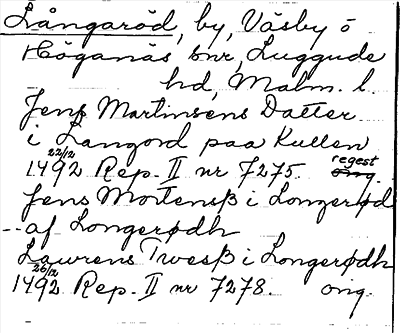 Långaröd, by, Väsby o
Höganäs snr, Luggude
hd, Malm. l.
Jens Martinsens Datter
i Langord paa Kullen
22/12 1492 Rep. II nr 7275. regest
Jens Mortensß i Longerød
-- af Longerødh
Lawrens Twesß i Longerødh
26/12 1492 Rep. II nr 7278. ong.